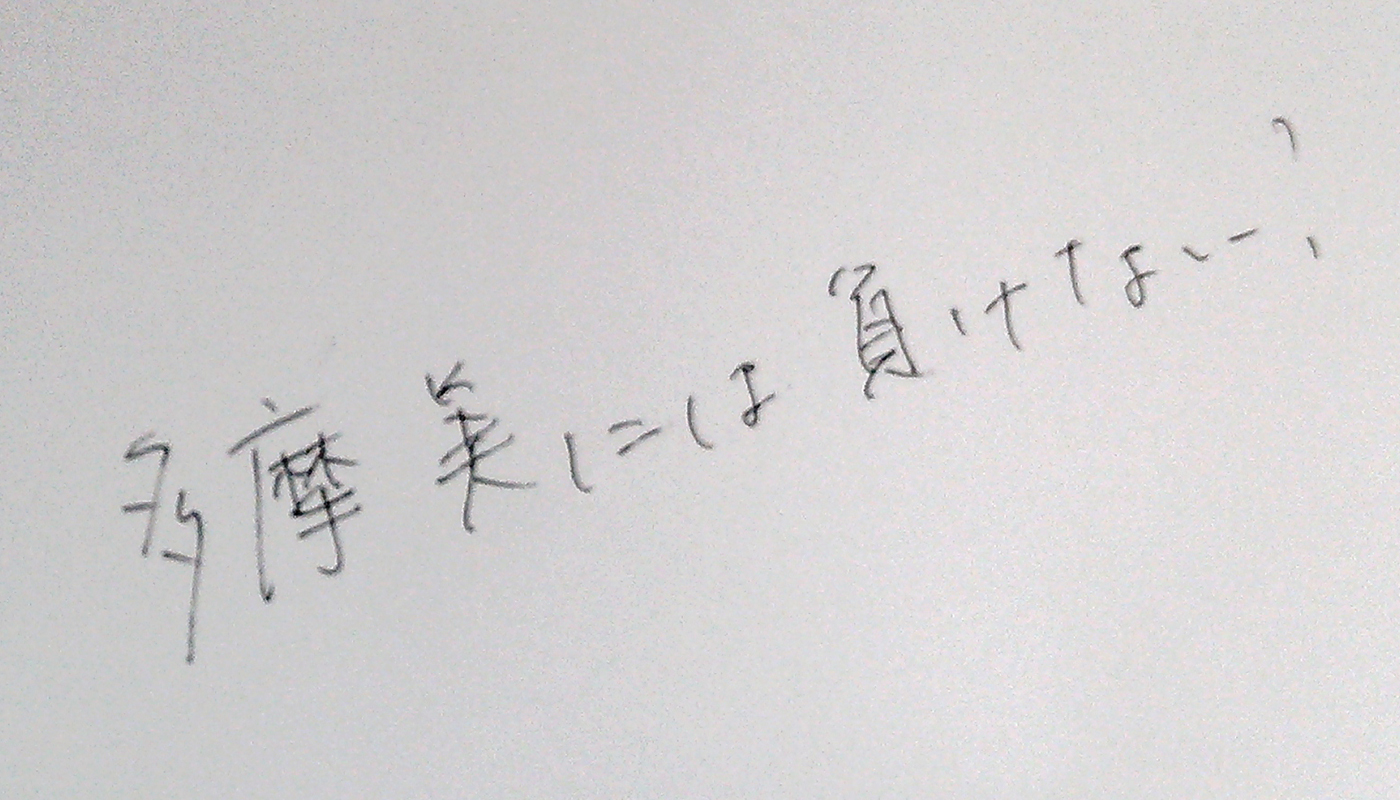 多摩美には負けない!